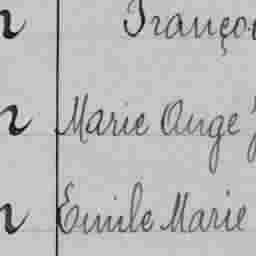 n Françoi
n Marie Ange
n Emile Marie